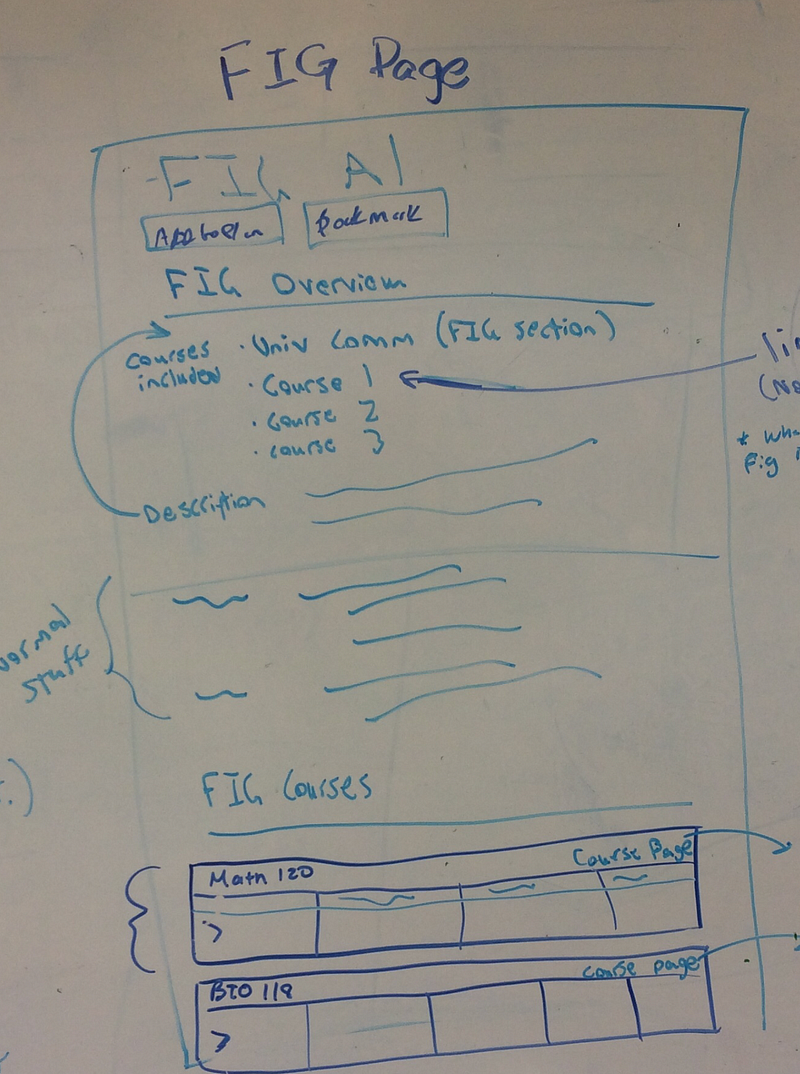 FIG Page
FIG A1
Add to Plan Bookmark
FIG Overview
courses included
· Univ Comm (FIG section)
· Course 1
· Course 2
· course 3
Description
* Wh
Fig i
normal
stuff
FIG Courses
Math 120 Course Page
BIO 118 course page